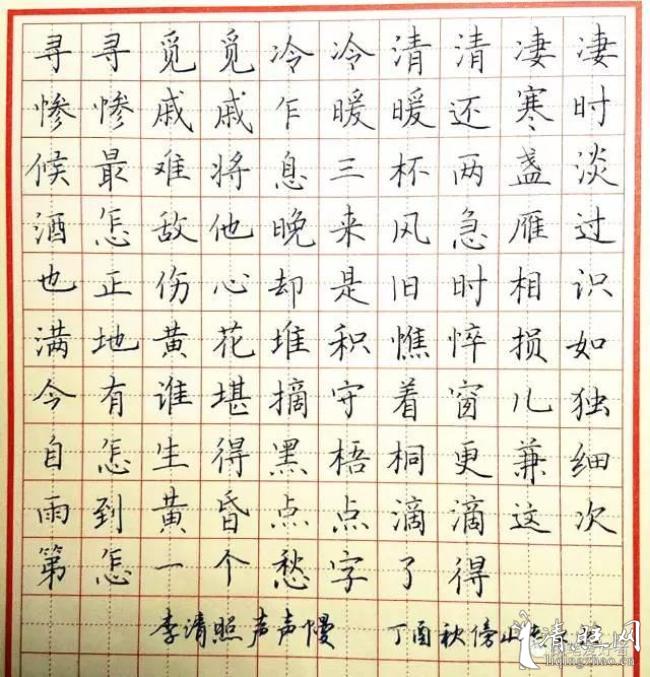 寻寻觅觅冷冷清清凄凄
惨惨戚戚乍暖暖还寒时
候最难将息三杯两盏淡
酒怎敌他晚来风急雁过
也正伤心却是旧时相识
满地黄花堆积憔悴损如
今有谁堪摘守着窗儿独
自怎生得黑梧桐更兼细
雨到黄昏点点滴滴这次
第怎一个愁字了得
李清照声声慢 丁酉秋傍山
清照网
liqingzhao.cn